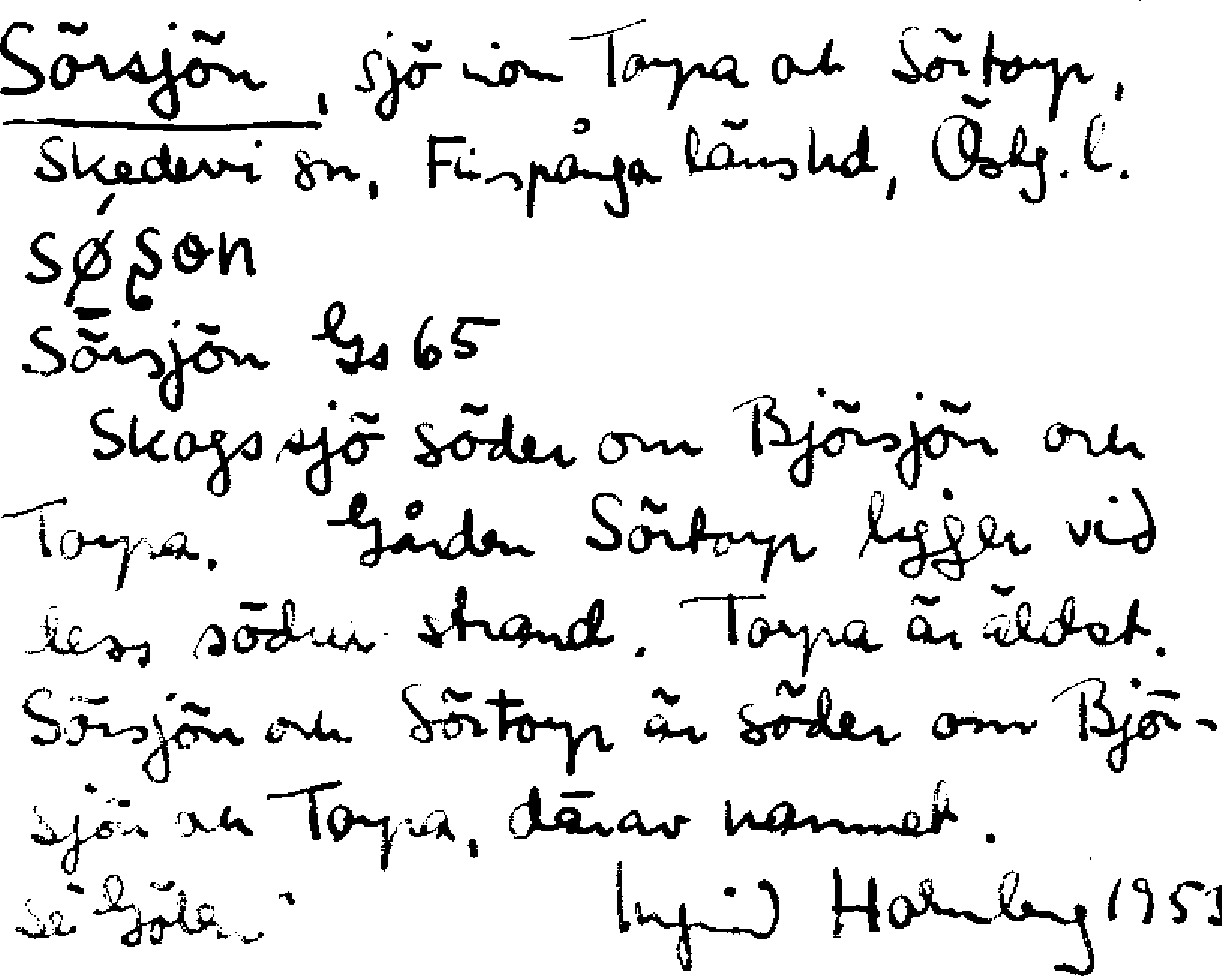 Sörsjön, sjö inom Torpa och Sörtorp,
Skedevi sn, Finspånga länshd, Östg. l.
Sörsjön Gs 65
Skogssjö söder om Björsjön och
Torpa. Gården Sörtorp ligger vid
dess södra strand. Torpa är äldst.
Sörsjön och Sörtorp är söder om Björ-
sjön och Torpa, därav namnet.
se Gölen
Ingrid Holmberg 1953